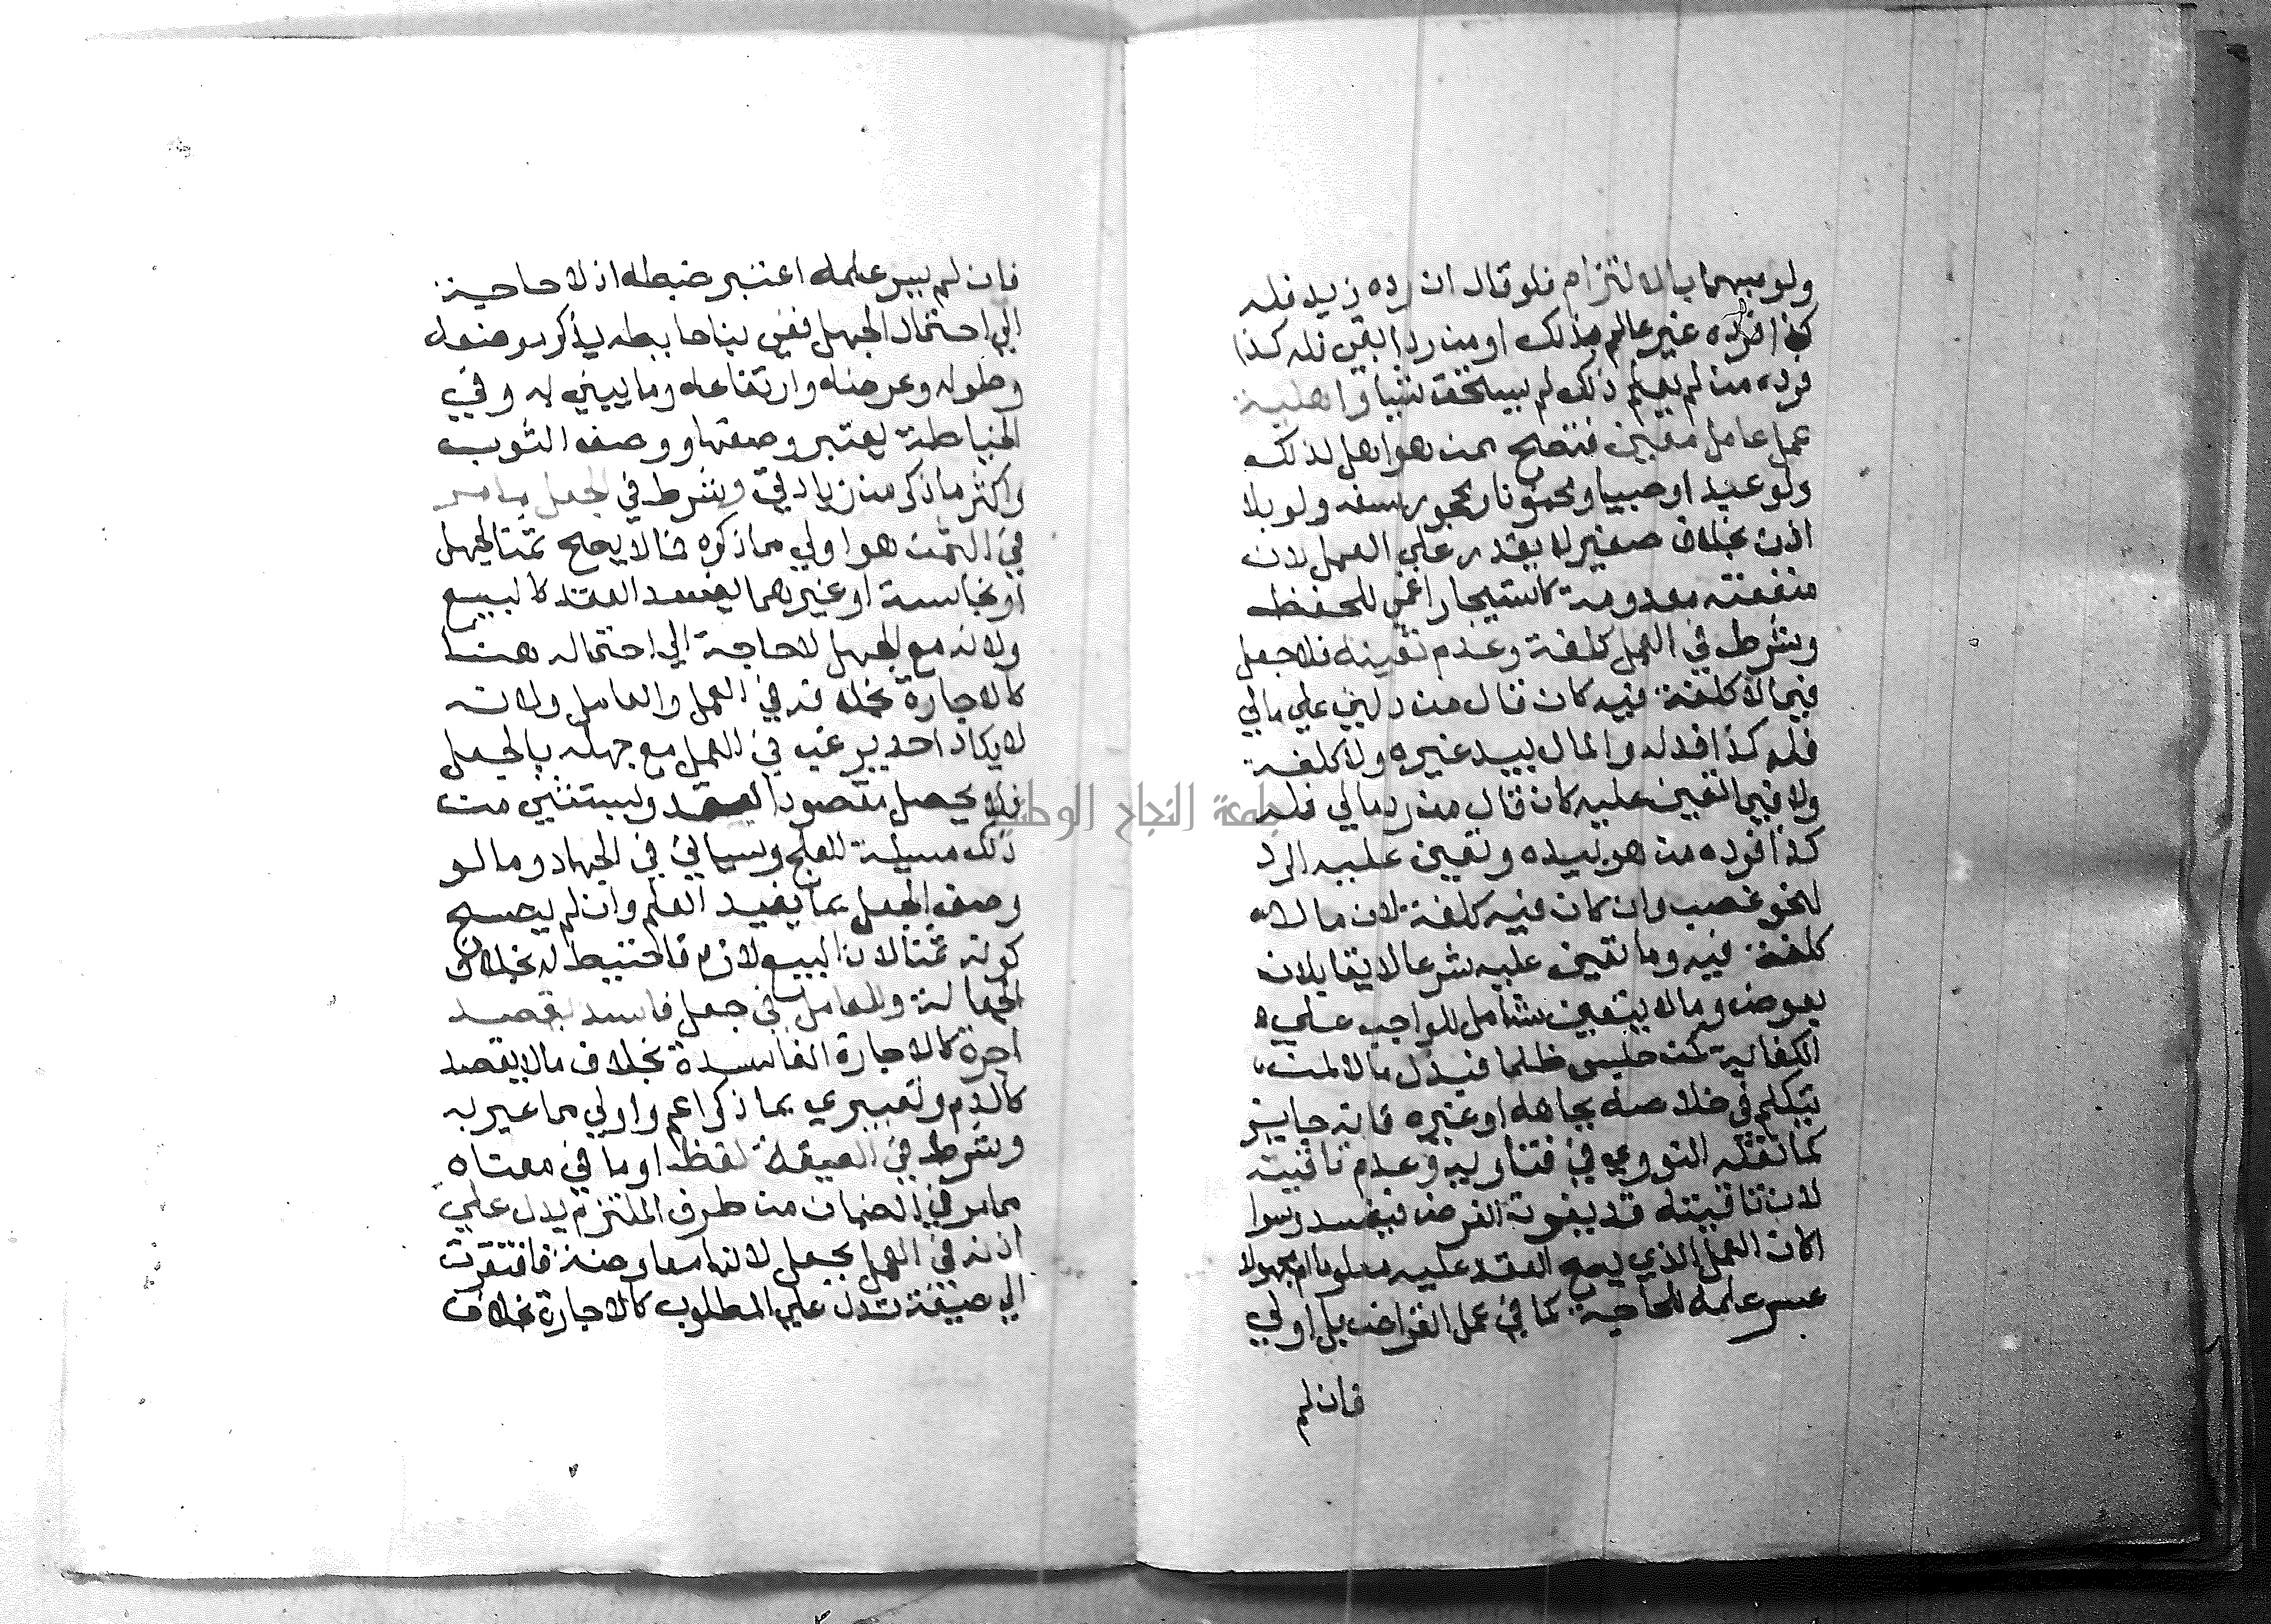 ولو مبهما بالالتزام فلو قال ان رده زيد فله
كذا فرده غير عالم بذلك او من رد ابقي فله كذا
فرده من لم يعلم ذلك لم يستحق شيا واهلية
عمل عامل معين فتصح ممن هو اهل لذلك
ولو عبدا وصبيا ومجنونا ومحجور سفه ولو بلا
اذن بخلاف صغير لا يقدر على العمل لان
منفعته معدومة كاستيجار اعمى للحفظ
وشرط في العمل كلفة وعدم تعينه فلا جعل
فيما لا كلفة فيه كان قال من دلني على مالي
فله كذا فدله والمال بيد غيره ولا كلفة
ولا فيما تعين عليه كان قال من رد مالي فله
كذا فرده من هو بيده وتعين عليه الرد
لنحو غصب وان كان فيه كلفة لان ما لا
كلفة فيه وما تعين عليه شرعا لا يقابلان
بعوض وما لا يتعين شامل للواجب على
الكفاية كمن حبس ظلما فبذل مالا لمن
يتكلم في خلاصه بجاهه او غيره فانه جايز
كما نقله النووي في فتاويه وعدم تاقيته
لان تاقيته قد يفوت الغرض فيفسد وسوا
اكان العمل الذي يصح العقد عليه معلوما ام مجهولا
عسر علمه للحاجة كما في عمل القراض بل اولى
فان لم
فان لم يعسر علمه اعتبر ضبطه اذ لا حاجة
الى احتمال الجهل ففي بنا حايط يذكر موضعه
وطوله وعرضه وارتفاعه وما يبني به وفي
الخياطة يعتبر وصفها ووصف الثوب
واكثر ما ذكر من زيادتي وشرط في الجعل ما مر
في الثمن هو اولى مما ذكره فما لا يصح ثمنا لجهل
او نجاسة او غيرهما يفسد العقد كالبيع
ولانه مع الجهل لا حاجة الى احتماله هنا
كالاجارة بخلافه في العمل والعامل ولانه
لا يكاد احد يرغب في العمل مع جهله بالجعل
فلا يحصل مقصود العقد ويستثنى من
ذلك مسيلة العلج وسياتي في الجهاد وما لو
وصف الجعل بما يفيد العلم وان لم يصح
كونه ثمنا لان البيع لازم فاحتيط له بخلاف
الجعالة وللعامل في جعل فاسد يقصد
اجرة كالاجارة الفاسدة بخلاف ما لا يقصد
كالدم وتعبيري بما ذكر اعم واولى مما عبر به
وشرط في الصيغة لفظ او ما في معناه
مما مر في الضمان من طرف الملتزم يدل على
اذنه في العمل بجعل لانها معاوضة فافتقرت
الى صيغة تدل على المطلوب كالاجارة بخلاف
جامعة النجاح الوطنية